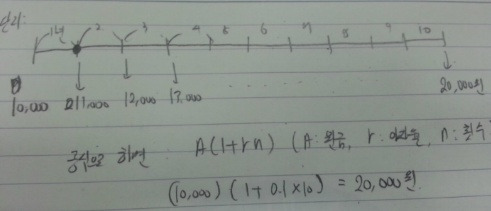 단리:
1년 2 3 4 5 6 7 8 9 10
10,000 11,000 12,000 13,000 20,000원
공식으로 하면 A(1+rn) (A:원금, r:이자율, n:횟수
(10,000) (1+0.1×10) = 20,000원.